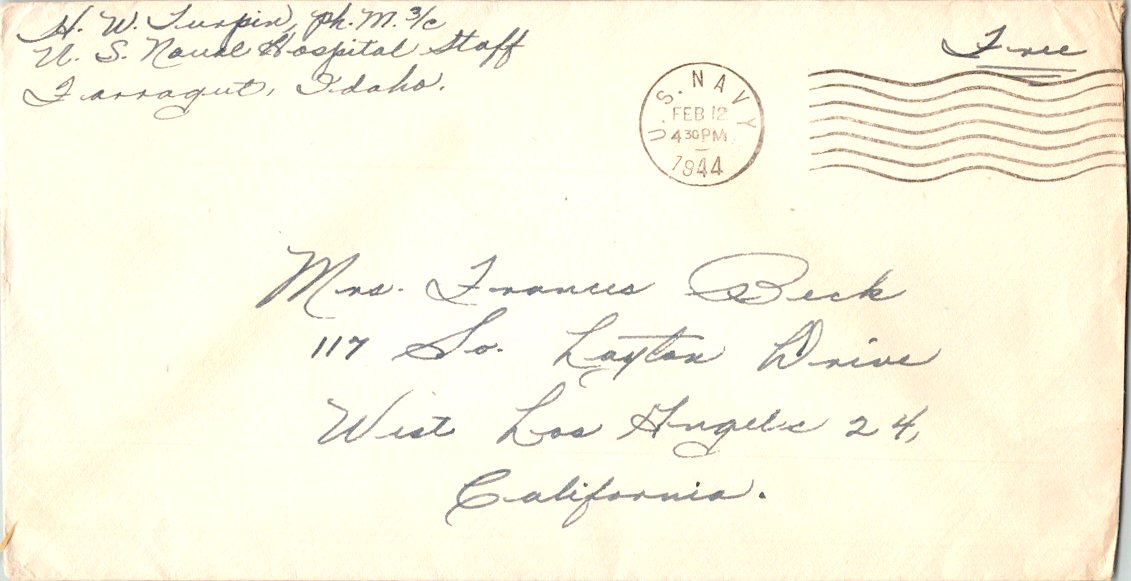 H. W. Turpin, Ph. M. 3/c
U. S. Naval Hospital Staff
Farragut, Idaho.
Free
U. S. NAVY
FEB 12
4 30 PM
1944
Mrs. Frances Beck
117 So. Layton Drive
West Los Angeles 24,
California.